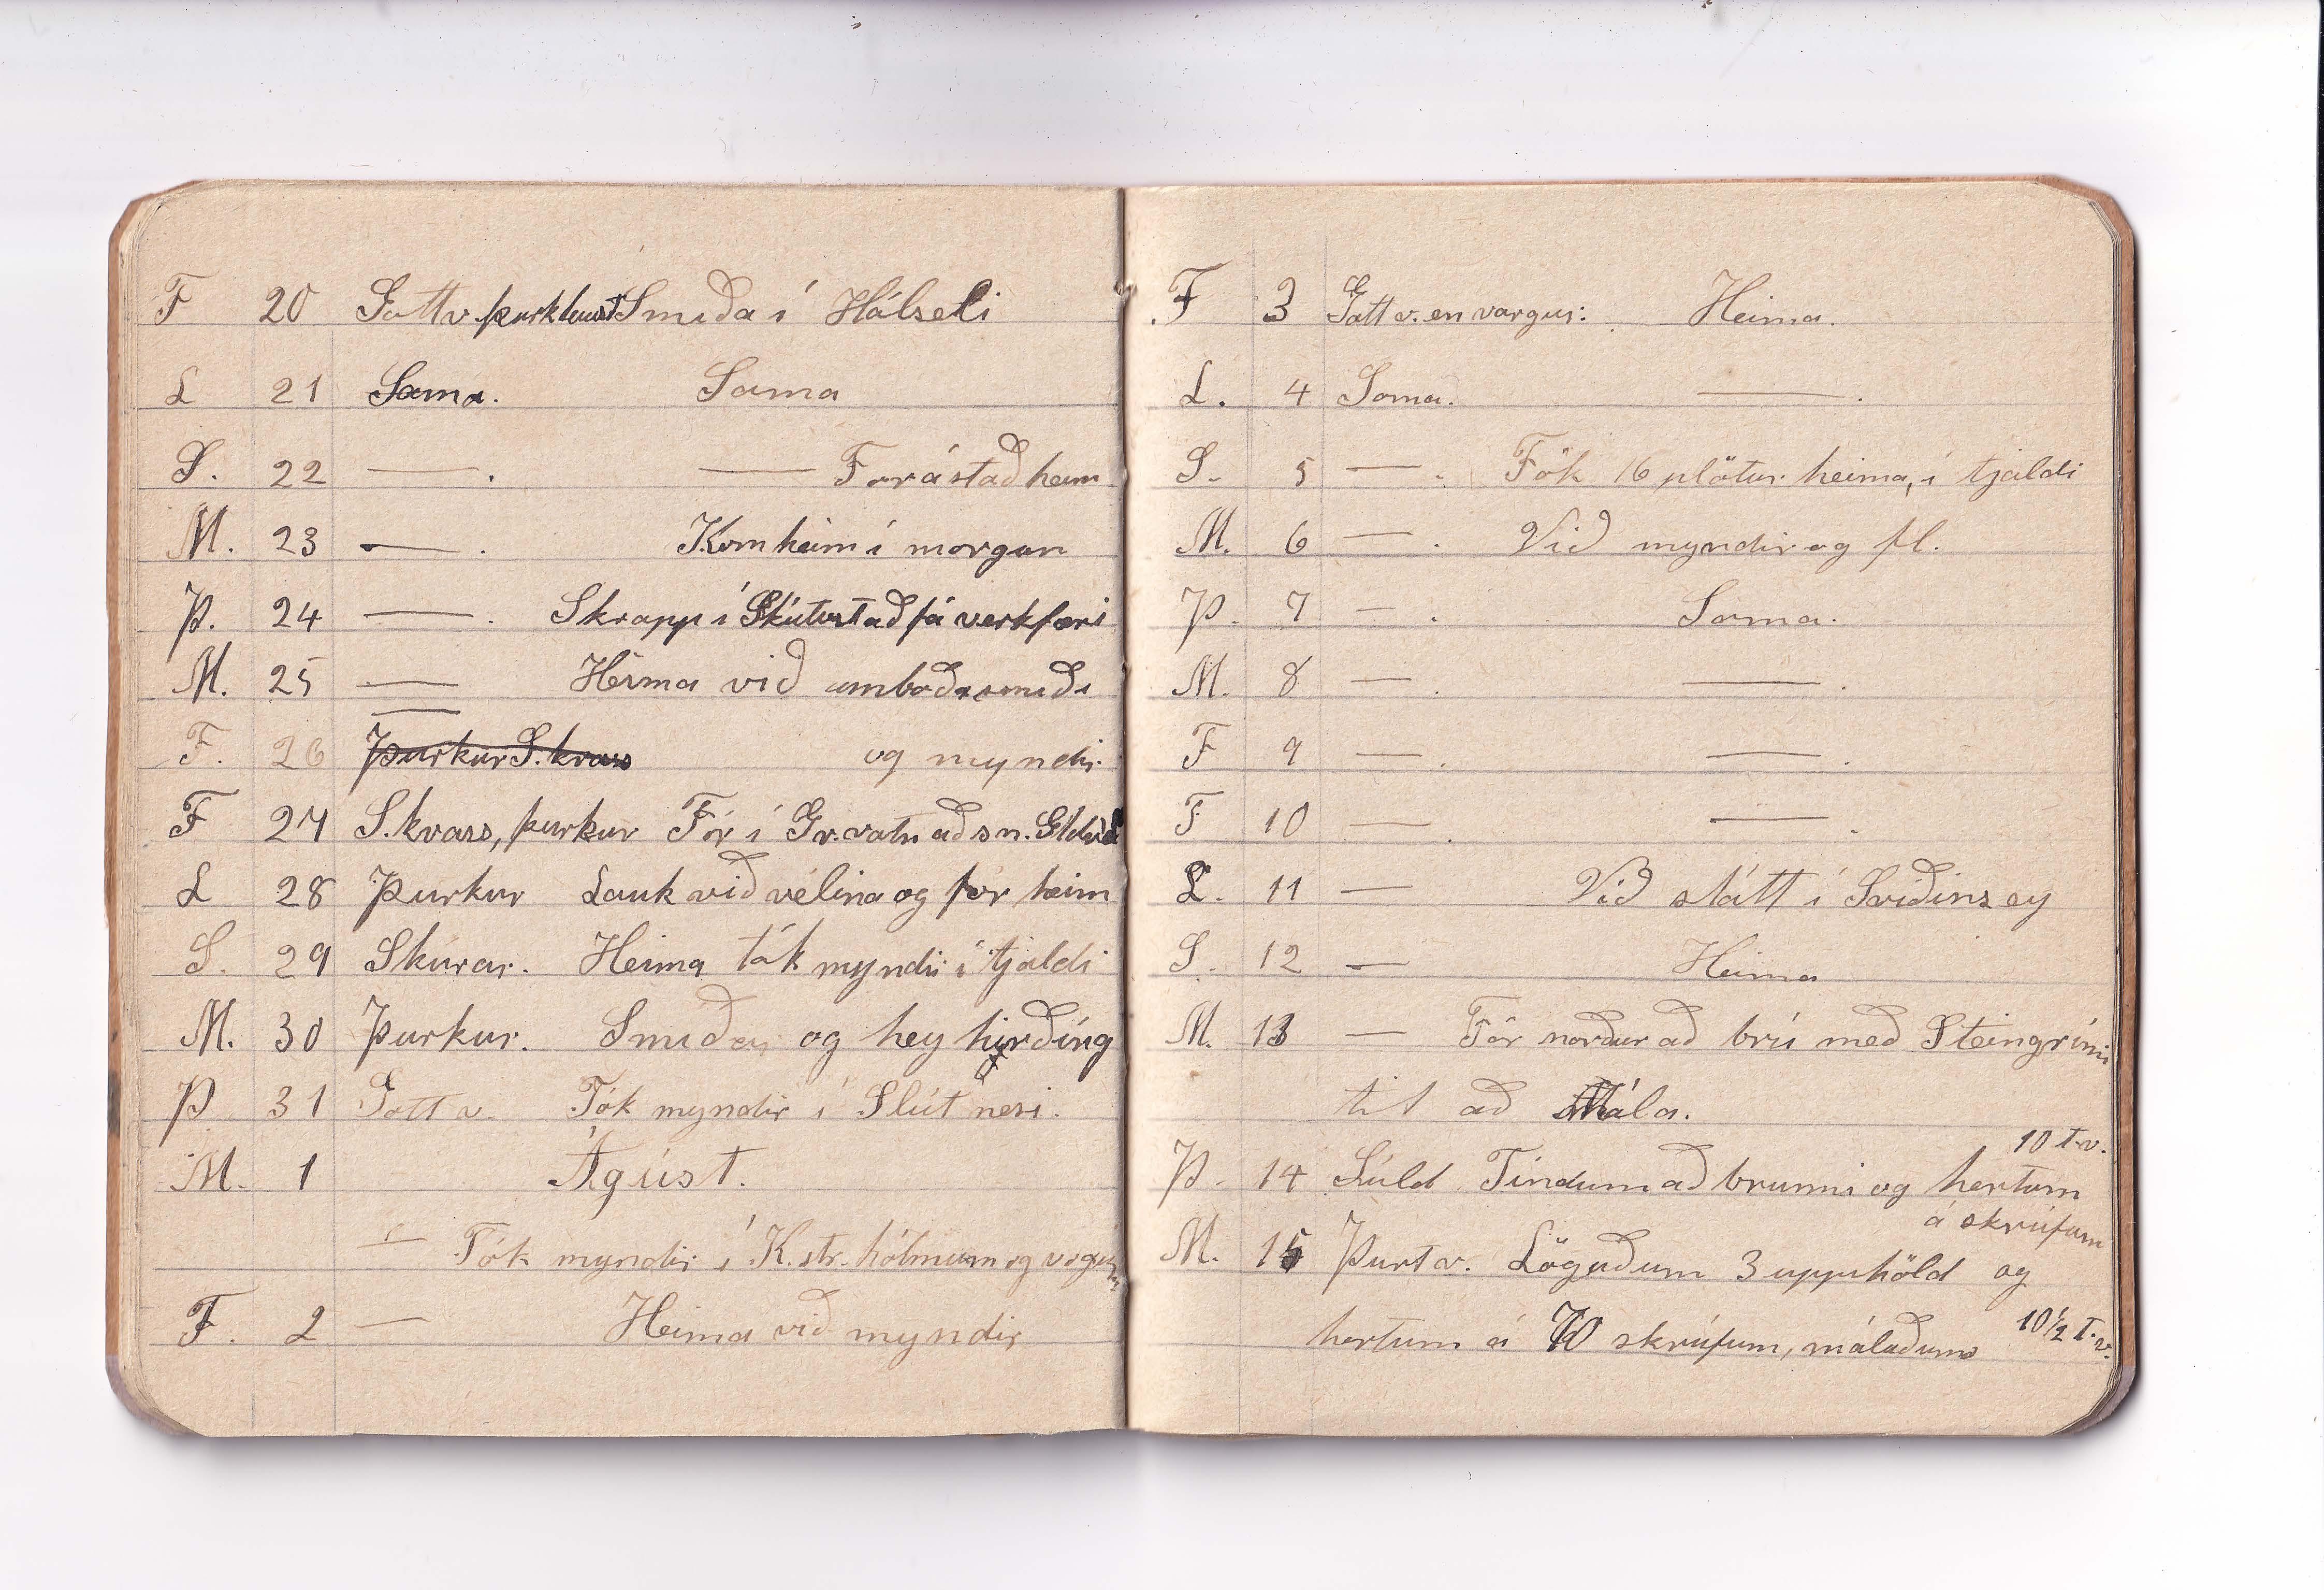 F 20 Gott v. þurklaust Smíða í Hálseli
L 21 Sama. Sama
S. 22 —. — Fór á stað heim
M. 23 —. Kom heim í morgun
Þ. 24 —. Skrapp í Skútust að fá verkfæri
M. 25 — Heima við amboðasmíði
F. 26 — Þurkur S. kvass og myndir.
F 27 S. kvass, þurkur Fór í Gr.vatn að sn.
L 28 Þurkur Lauk við vélina og fór heim
S. 29 Skúrar. Heima tók myndir í tjaldi
M. 30 Þurkur. Smíðar og hey hirðíng
Þ 31 Gott v. Tók myndir í Slútnesi.
M. 1 Ágúst.
— Tók myndir í K.str.hólmum og vogum
F. 2 — Heima við myndir
F 3 Gott v. en vargur. Heima.
L. 4 Sama. —.
S. 5 —. Tók 16 plötur heima, í tjaldi
M. 6 —. Við myndir og fl.
Þ. 7 —. Sama.
M. 8 —. —.
F 9 —. —.
F 10 —. —.
L. 11 — Við slátt í Sviðinsey
S. 12 — Heima
M. 13 — Fór norður að brú með Steingrími
til að Mála.
10 t.v.
Þ. 14 Súld Tíndum að brunni og hertum
á skrúfum
M. 15 Þurt v. Löguðum 3 uppihöld og
hertum á 70 skrúfum, máluðum 10½ t.v.